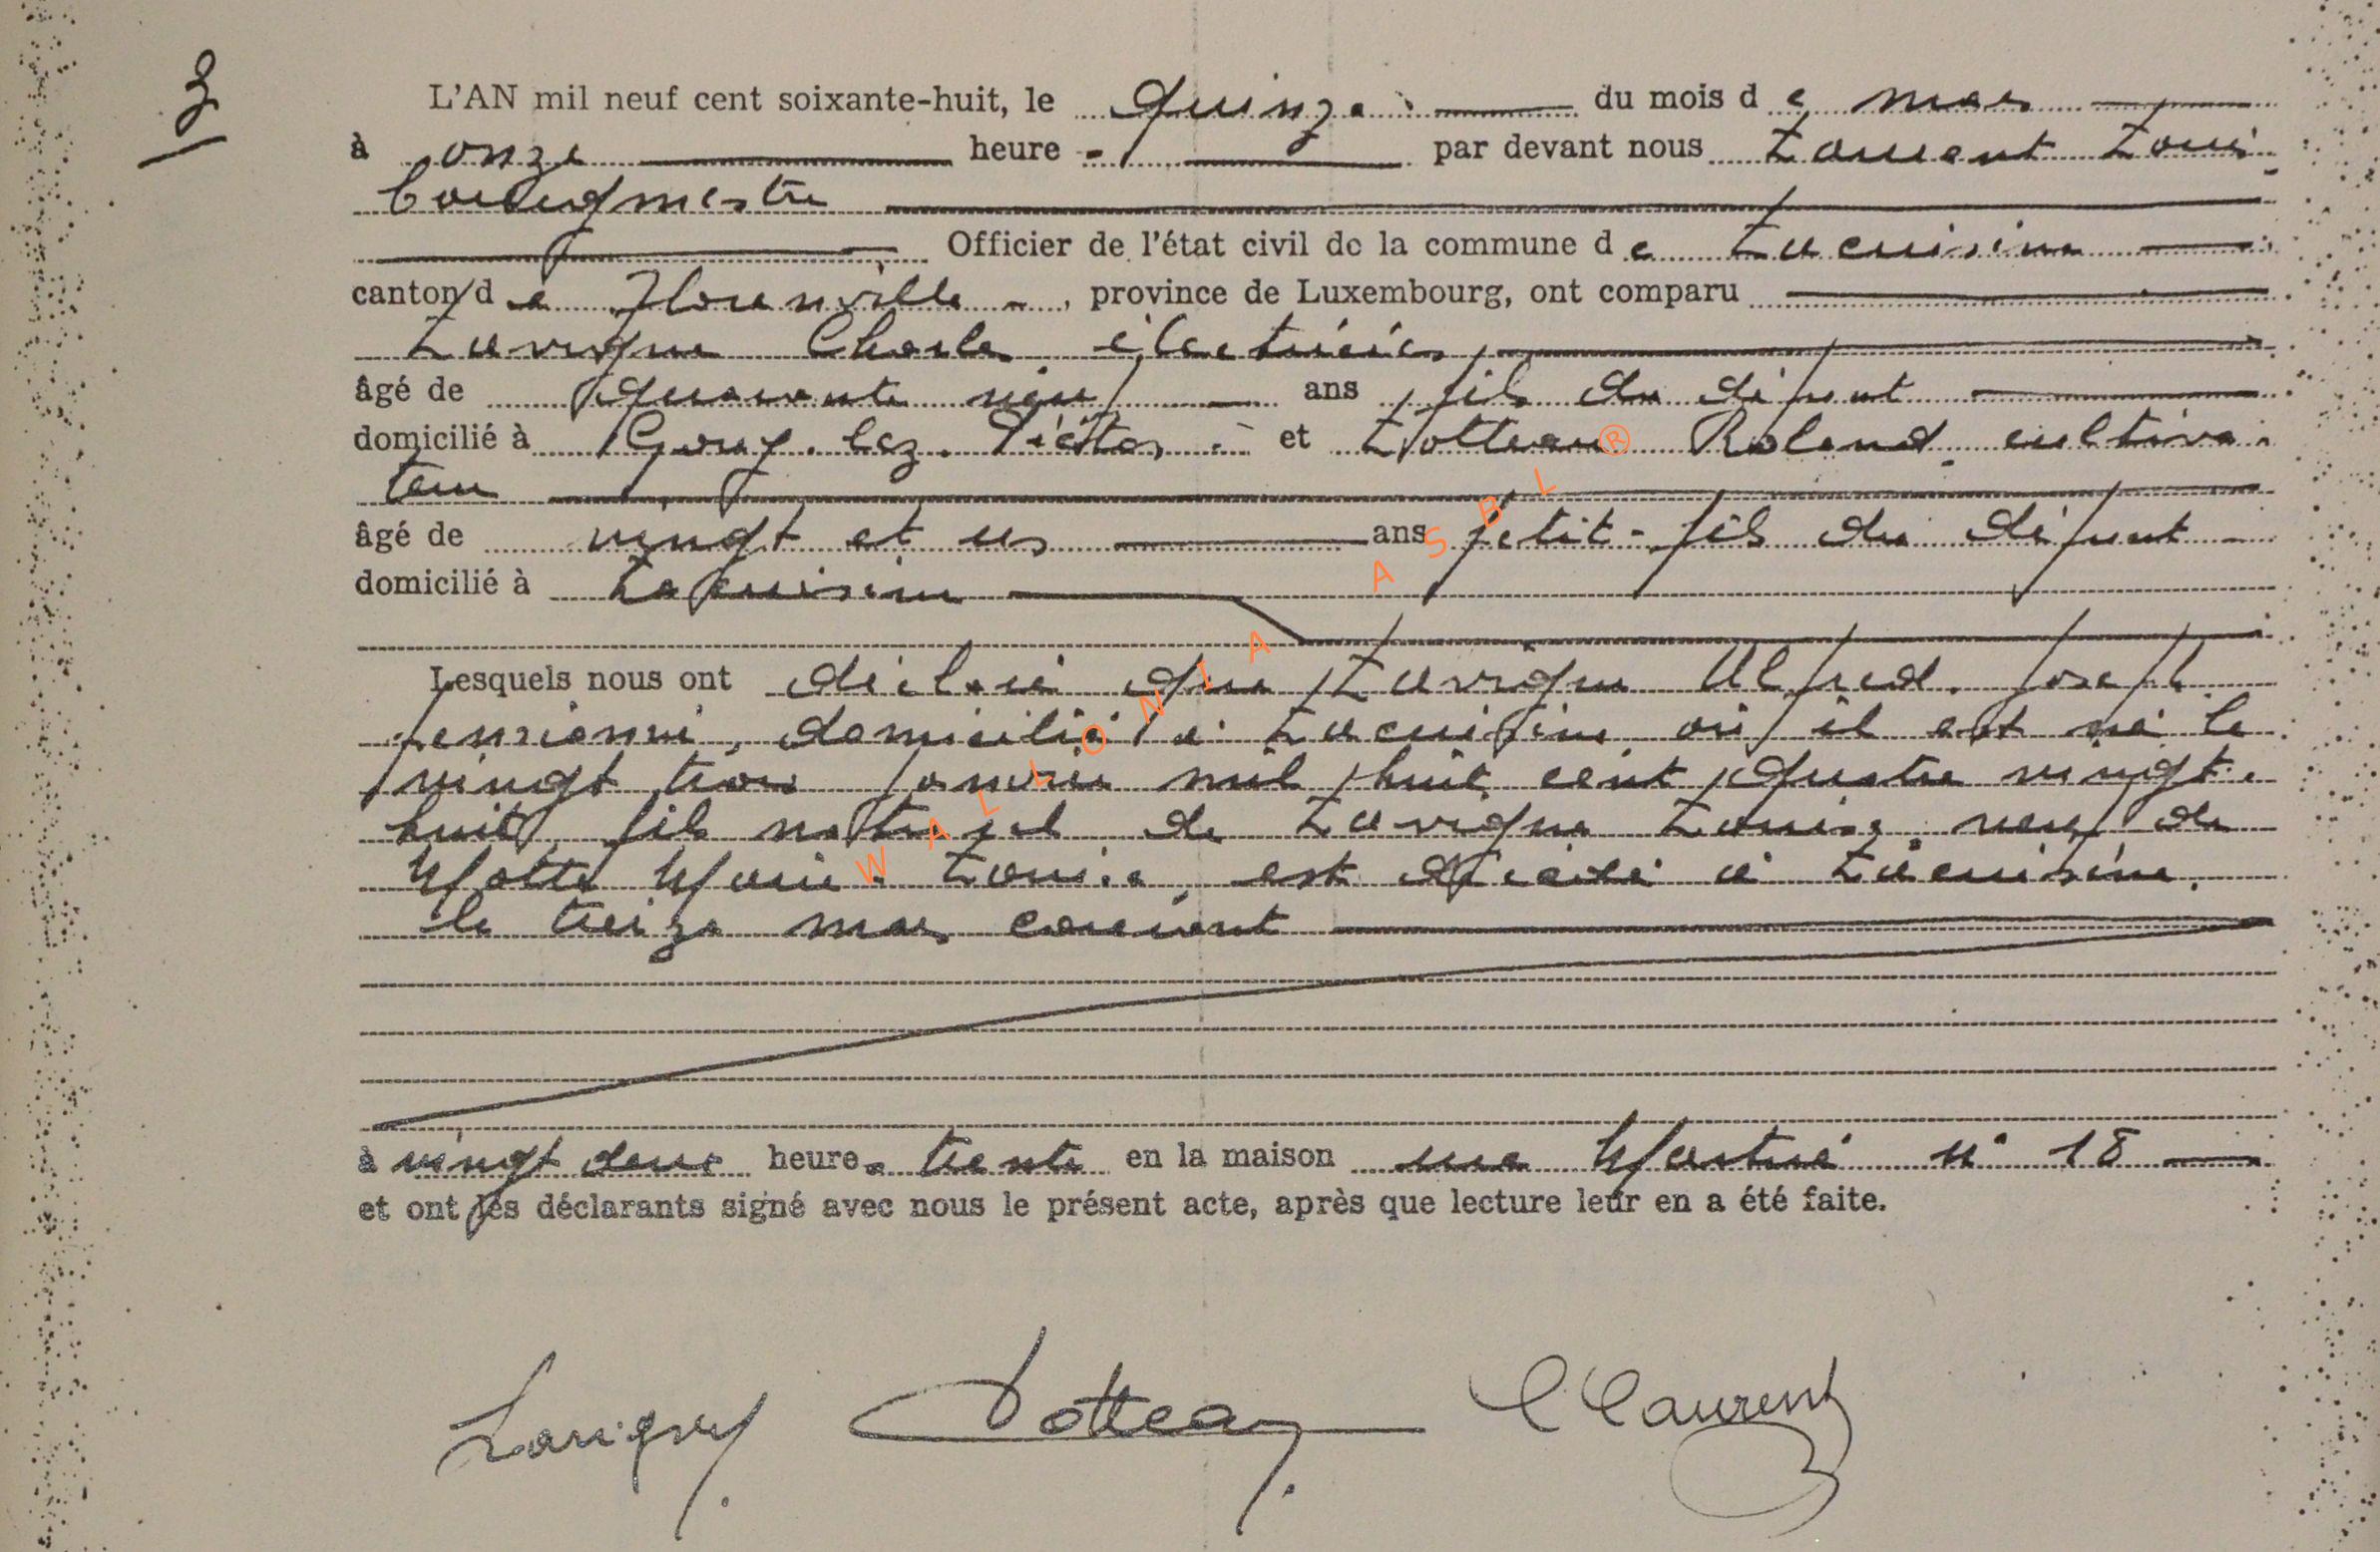 3
L'AN mil neuf cent soixante-huit, le quinze du mois de mars
à onze heure - par devant nous Laurent Louis
bourgmestre
Officier de l'état civil de la commune de Lacuisine
canton de Florenville, province de Luxembourg, ont comparu
Lavigne Charles électricien,
âgé de quarante neuf ans, fils du défunt
domicilié à Gouy-lez-Piéton, et Lotteau Roland, cultiva-
teur
âgé de vingt et un ans petit-fils du défunt
domicilié à Lacuisine
Lesquels nous ont déclaré que Lavigne Alfred-Joseph
pensionné, domicilié à Lacuisine où il est né le
vingt trois janvier mil huit cent quatre vingt-
huit, fils naturel de Lavigne Louise, veuf de
Motte Marie-Louise, est décédé à Lacuisine,
le treize mars courant
à vingt deux heures trente en la maison rue n° 18
et ont les déclarants signé avec nous le présent acte, après que lecture leur en a été faite.
Lavigne Lotteau Laurent
WALLONIA ASBL ®